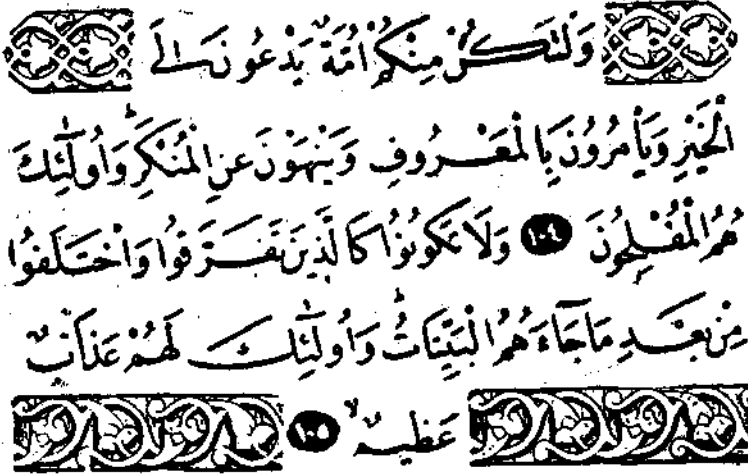 وَلْتَكُنْ مِنْكُمْ اُمَّةٌ يَدْعُونَ اِلَى
الْخَيْرِ وَيَأْمُرُونَ بِالْمَعْرُوفِ وَيَنْهَوْنَ عَنِ الْمُنْكَرِۜ وَاُو۬لٰٓئِكَ
هُمُ الْمُفْلِحُونَ ١٠٤ وَلَا تَكُونُوا كَالَّذِينَ تَفَرَّقُوا وَاخْتَلَفُوا
مِنْ بَعْدِ مَا جَٓاءَهُمُ الْبَيِّنَاتُۜ وَاُو۬لٰٓئِكَ لَهُمْ عَذَابٌ
عَظِيمٌۙ ١٠٥